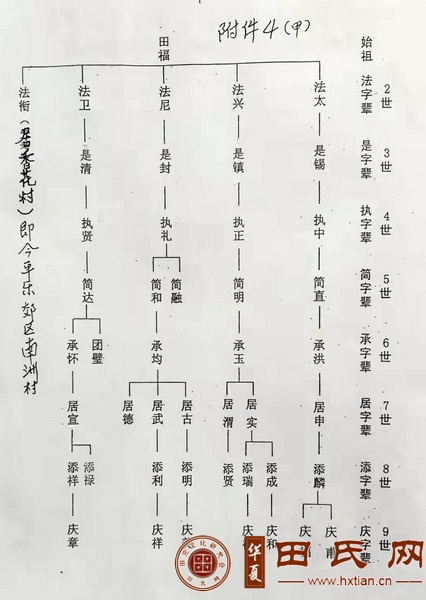 附件4(甲)
2世 3世 4世 5世 6世 7世 8世 9世
始祖 法字辈 是字辈 执字辈 简字辈 承字辈 居字辈 添字辈 庆字辈
田福
法太 是锡 执中 简直 承洪 居申 添麟 庆 庆
法兴 是镇 执正 简明 承玉
居实 添成 庆和
添瑞 庆
居渭 添贤
法尼 是封 执礼
简融
简和 承均
居古 添明 庆
居武 添利 庆祥
居德
法卫 是清 执贤 简达
团璧
承怀 居宣
添禄
添祥 庆章
法衔(花村)即今平乐郊区南洲村
华夏
田氏网
www.hxtian.cn